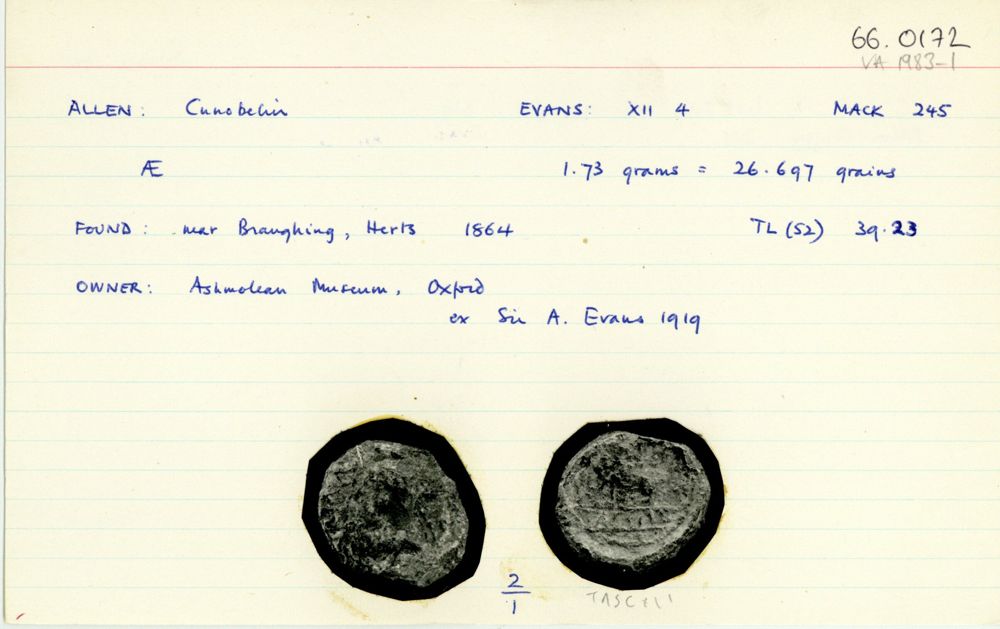 66.0172
VA 1983-1
ALLEN: Cunobelin EVANS: XII 4 MACK 245
Æ 1.73 grams = 26.697 grains
FOUND: near Braughing, Herts 1864 TL (52) 39.23
OWNER: Ashmolean Museum, Oxford
ex Sir A. Evans 1919
2
1